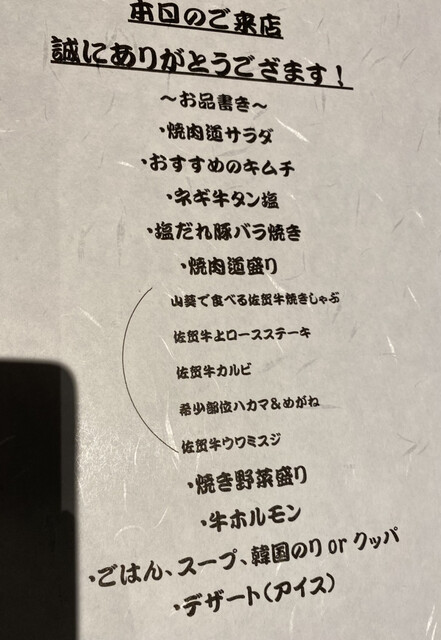 本日のご来店
誠にありがとうござます！
～お品書き～
・焼肉道サラダ
・おすすめのキムチ
・ネギ牛タン塩
・塩だれ豚バラ焼き
・焼肉道盛り
山葵で食べる佐賀牛焼きしゃぶ
佐賀牛上ロースステーキ
佐賀牛カルビ
希少部位ハカマ&めがね
佐賀牛ウワミスジ
・焼き野菜盛り
・牛ホルモン
・ごはん、スープ、韓国のり or クッパ
・デザート（アイス）